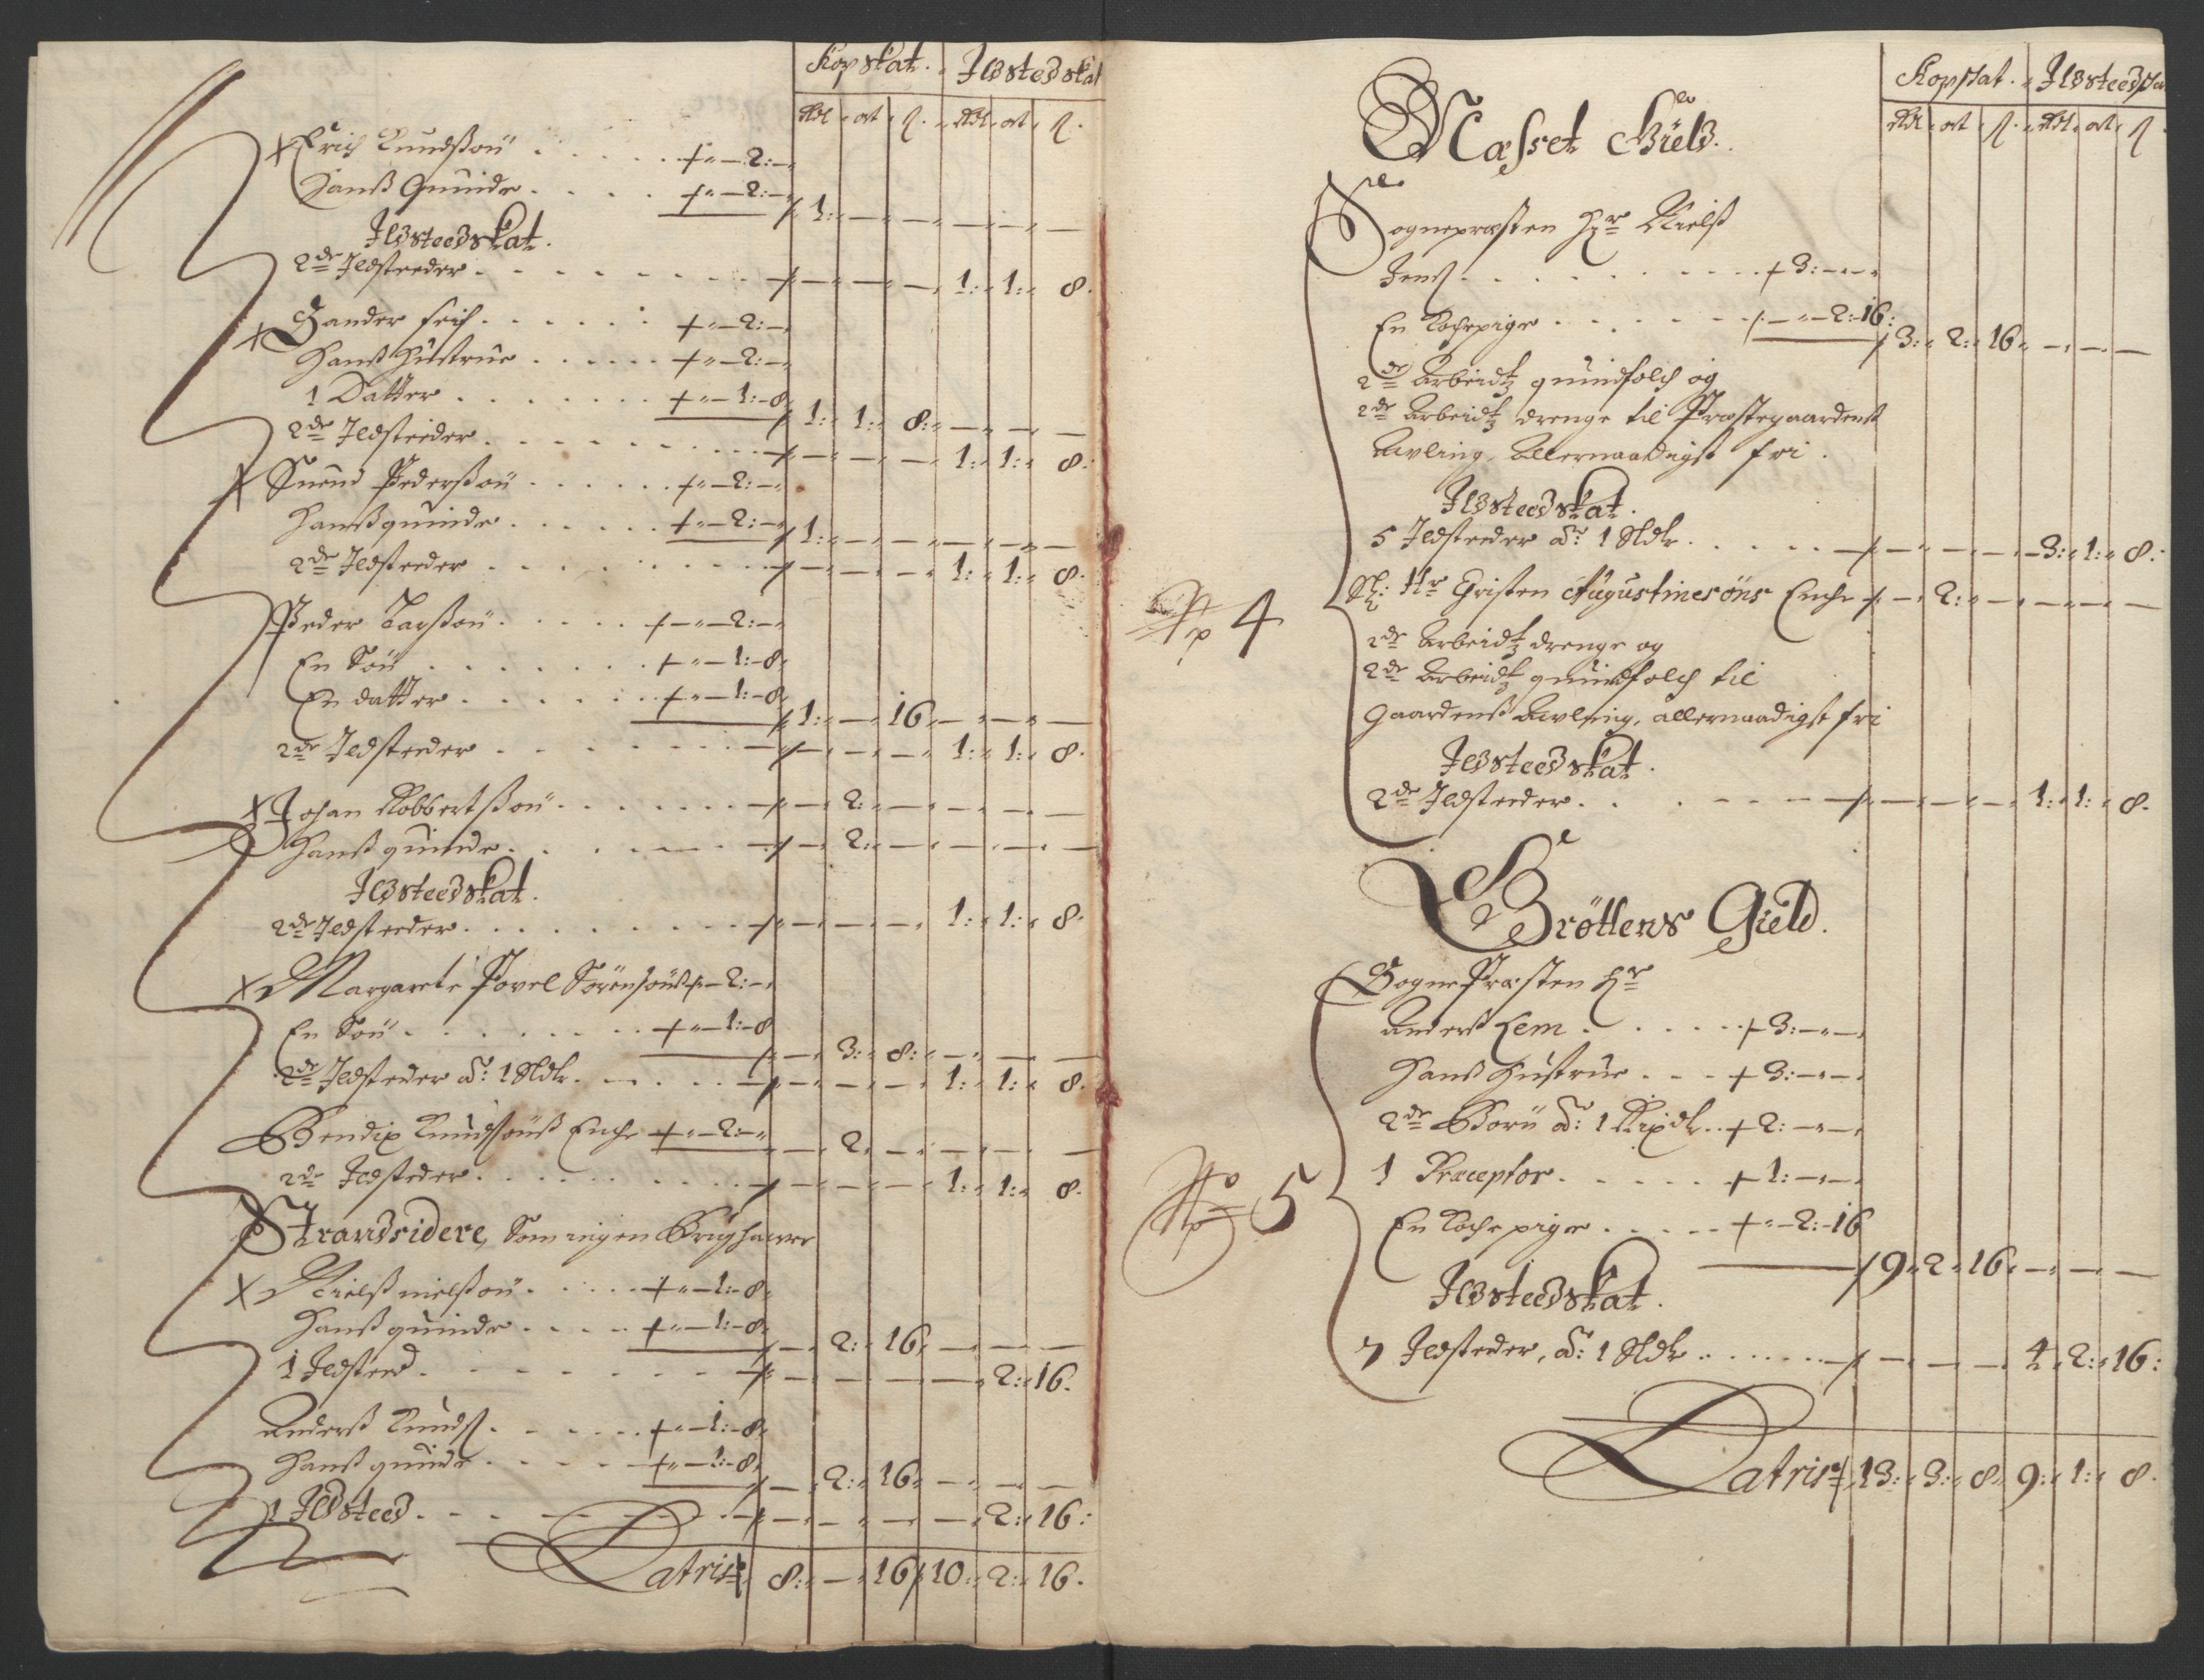 Kopskat. Ildstedskat
Rdr ort ß. Rdr ort ß.
Erich Knudßøn . . . . . +"—2:—
Hanß Quinde . . . . +"—2:— 1:"—"—"—"—"—
Ildsteedskat.
2de Ildsteeder . . . . . —"—"—" 1:" 1:" 8.
Sander feif . . . . . . +"—2:—
Hanß Hustrue . . . . . . +"—2:—
1 Datter . . . . . . . +"—1:—8 1:" 1:" 8:"—"—"—
2de Ildsteeder . . . . . —"—"—" 1:" 1:" 8:
Suend Pederßøn . . . . . . +"—2:—
Hanß quinde . . . . . . +"—2:— 1:"—"—"—"—"—
2de Ildsteeder . . . . . —"—"—" 1:" 1:" 8.
Peder Larßøn . . . . . +—"—2:—
En Søn . . . . . . . +"—1:—8
En datter . . . . . . +"—1:—8 1:"—" 16"—"—"—
2de Ildsteeder . . . . . —"—"—" 1:" 1:" 8.
Johan Robbertßøn . . . . . . —" 2:"—"—"—"—
Hanß quinde . . . . . —" 2:"—"—"—"—
Ildsteedskat.
2de Ildsteeder . . . . . —"—"—" 1:" 1:" 8.
Margarete Povel Sørenßøns +—2:—
En Søn . . . . . . . +"—1:—8 —" 3:" 8:"—"—"—
2de Ildsteder à: 1 Sldr. . . . . —"—"—" 1:" 1:" 8.
Bendix Knudßønß Enche +"—2:—" —" 2"—"—"—"—
2de Ildsteder . . . . . —"—"—" 1:" 1:" 8.
Strandsidere, Som ingen Brug hawer
Nielß nielßøn . . . . . +"—1:—8
Hanß quinde . . . . . +"—1:—8 —" 2:" 16"—"—"—
1 Ildsteed . . . . . —"—"—"—" 2:" 16.
Anderß Knudß . . . . . . +"—1:—8
Hanß quinde . . . . . +"—1:—8 —" 2:" 16"—"—"—
1 Ildsteed . . . . . —"—"—"—" 2:" 16:
Latris 8:"—" 16 10:" 2:" 16.
Kopskat. Ildsteedska
Rdr ort ß. Rdr ort ß
Næsset Giæld.
Sognepræsten Hr Nielß
Jenß . . . . . . . . . + 3:—"—"
En Kochepige . . . . . . —"—2:16: 3:" 2:" 16"—"—"—
2de Arbeidtz quindfolch og
2de Arbeidtz drenge til Præstegaardens
Avling, Allernaadigst fri.
Ildsteedskat.
5 Ildsteeder à: 1 Sldr. . . . . —"—"—" 3:" 1:" 8:
No 4
Sl: Hr Christen Augustinesøns Enche —" 2:"—"—"—"—
2de Arbeidtz drenge og
2de Arbeidtz quindfolch til
Gaardenß Avling, allernaadigst fri
Ildsteedskat.
2de Ildsteeder . . . . . —"—"—" 1:" 1:" 8.
Grøttens Gield.
Sogne Præsten Hr
Anderß Lem . . . . . . + 3:—"—
Hanß Hustrue . . . + 3:—"—
2de Børn à: 1 Rixdr. . + 2:—"—
No 5
1 Præceptor . . . . . + 1:—"—
En Koche pige . . . . . +"—2:—16
9" 2" 16"—"—"—
Ildsteedskat.
7 Ildsteder, à: 1 Sldr . . . . . —"—"—" 4" 2:" 16:
Latris 13:" 3:" 8" 9:" 1:" 8.